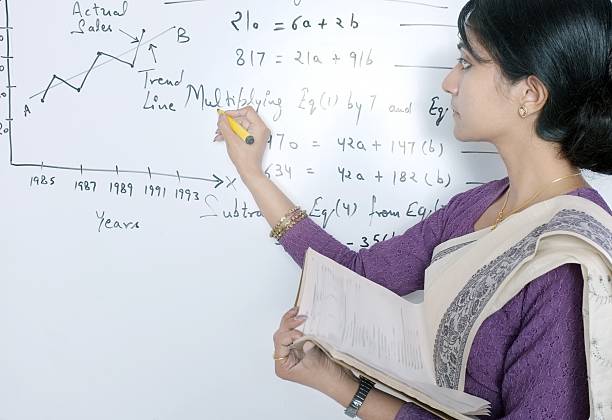 Actual
Sales
B
A
Trend
Line
20
1985 1987 1989 1991 1993
X
Years
210 = 6a + 2b
817 = 21a + 91b
Multiplying Eq(1) by 7 and Eq
470 = 42a + 147(b)
634 = 42a + 182(b)
Subtra Eq(4) from Eq(
- 35(